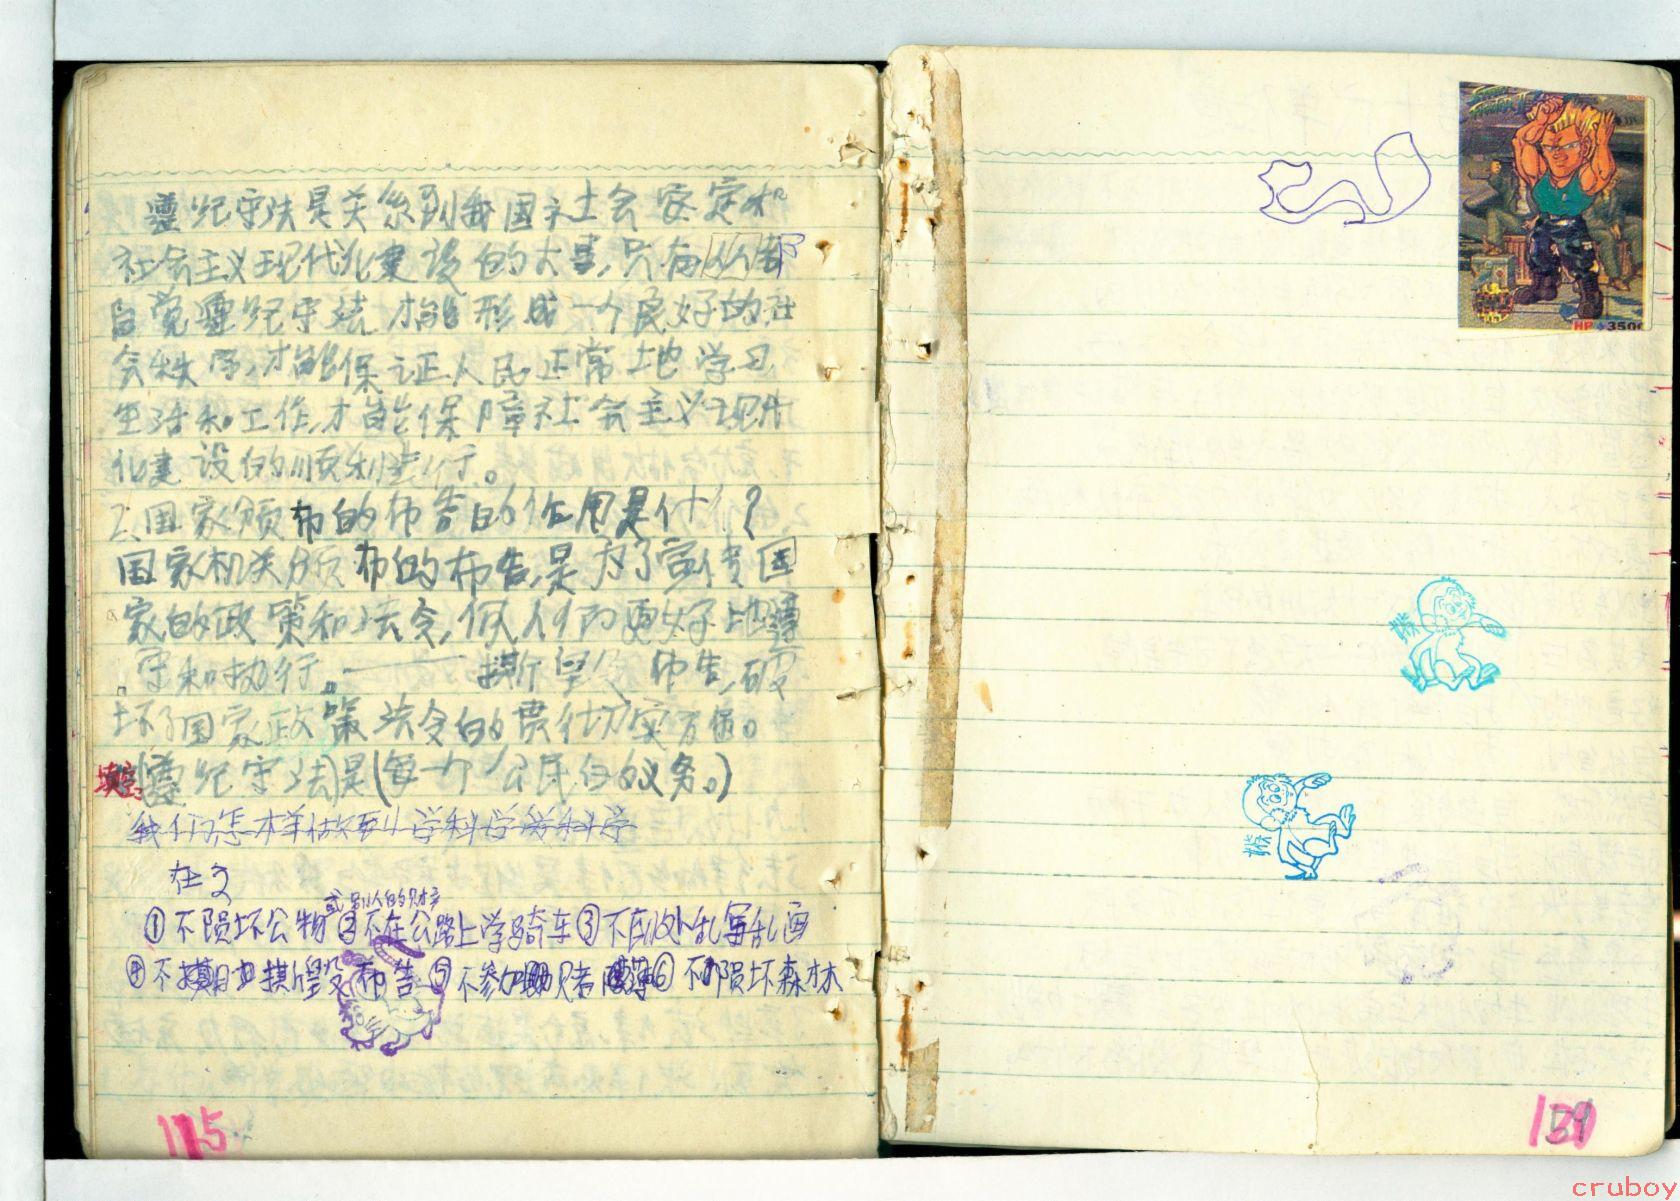 遵纪守法是关系到我国社会安定和
社会主义现代化建设的大事,只有人人都
自觉遵纪守法才能形成一个良好的社
会秩序,才能保证人民正常地学习
生活和工作,才能保障社会主义现代
化建设的顺利进行。
2、国家颁布的布告的作用是什么?
国家机关颁布的布告,是为了宣传国
家的政策和法令,使人们更好地遵
守和执行。——撕毁布告,破
坏了国家政策法令的贯彻
填空。遵纪守法是(每一个公民的义务。)
我们怎样做到学科学爱科学
在
或别人的财产
①不损坏公物②不在公路上学骑车③不到处乱写乱画
④不撕毁布告⑤不参加赌博⑥不损坏森林
115
HP 3500
猴
猴
139
cruboy